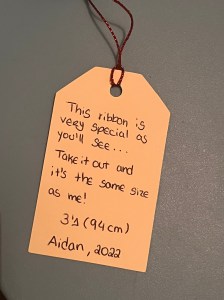 This ribbon is
very special as
you'll see...
Take it out and
it's the same size
as me!
3'1 (94cm)
Aidan, 2022